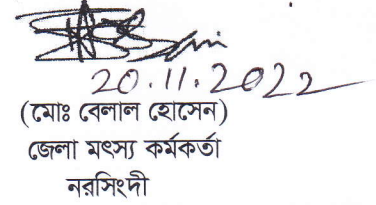 20.11.2022
(মোঃ বেলাল হোসেন)
জেলা মৎস্য কর্মকর্তা
নরসিংদী